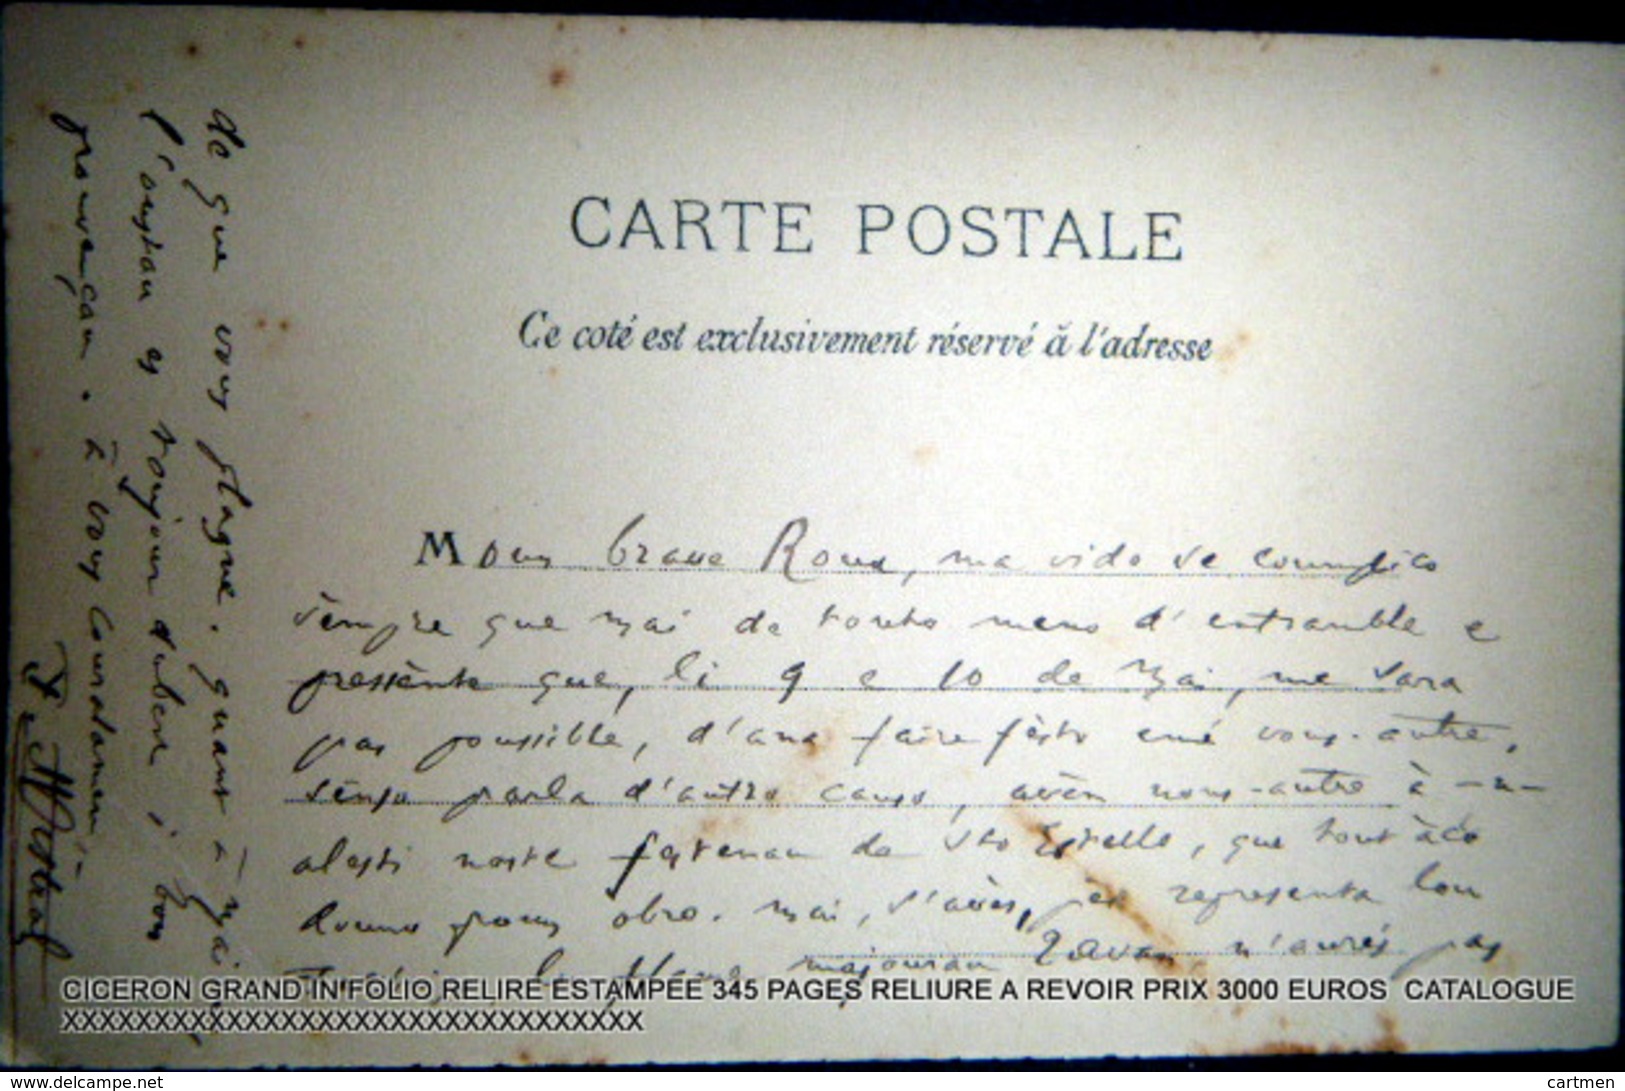 CARTE POSTALE
Ce coté est exclusivement réservé à l'adresse
Moun brave Roux, ma vido se coumplico
sèmpre que mai de touto meno d'
e
pressènte que, li 9 e 10 de Mai, me sara
pas poussible, d'ana faire fèsto emé vous-autre,
sènso parla d'autro causo, avèn nous-autre à -n-
alesti noste festenau de Sto Estello, que tout acò
douno proun obro. Mai, s'avès, pèr representa lou
majourau Devan, n'aurés pas
de que vous plagne. quant à mai
l'oustau es toujour dubert i bon
prouvençau. à vous couralamen
F. Mistral
CICERON GRAND IN FOLIO RELIRE ESTAMPEE 345 PAGES RELIURE A REVOIR PRIX 3000 EUROS CATALOGUE
XXXXXXXXXXXXXXXXXXXXXXXXXXXXXXXX
www.delcampe.net
cartmen